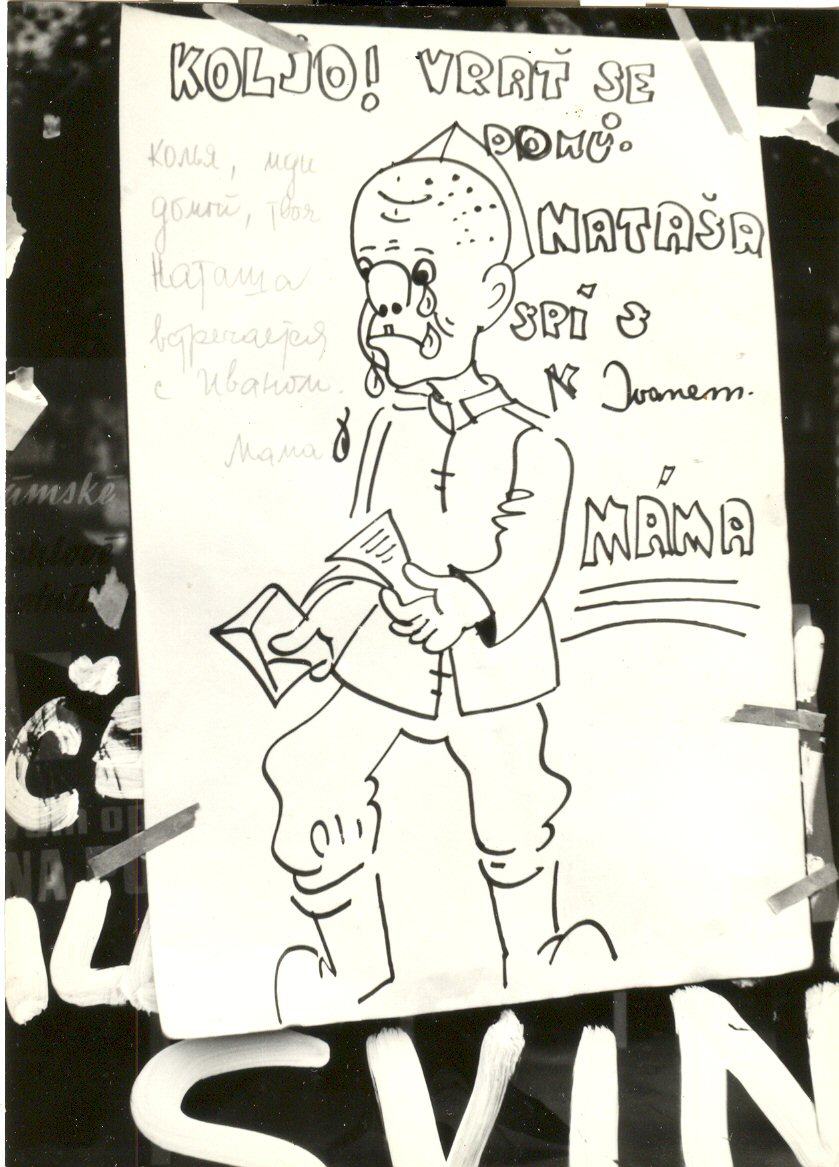 KOLJO! VRAŤ SE
DOMŮ.
NATAŠA
SPÍ S
N Ivanem.
MÁMA
Колья, иди
домой, твоя
Наташа
встречается
с Иваном.
Мама
ámské
NA
SVIN